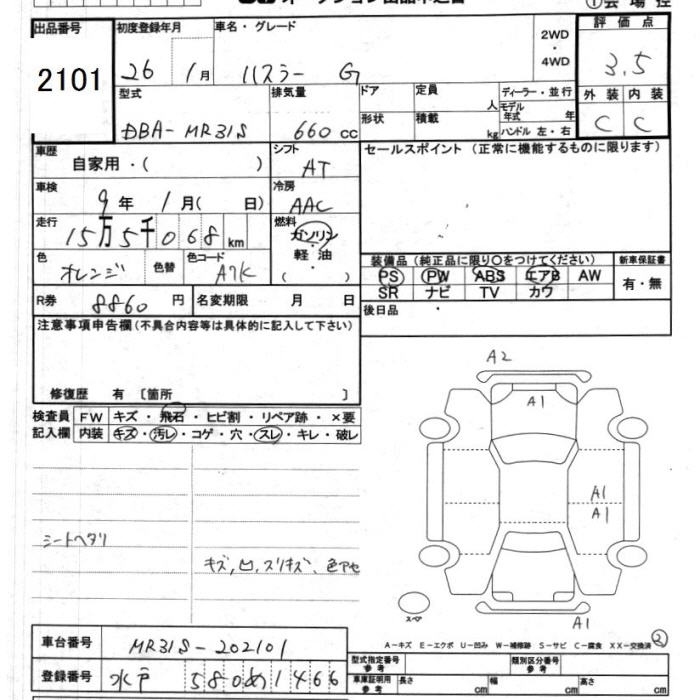 出品番号 初度登録年月 車名・グレード 2WD・4WD 評価点
2101 26 1月 ハスラー G 3.5
型式 排気量 ドア 定員 人 ディーラー・並行 外装 内装
DBA-MR31S 660cc 形状 積載 kg モデル年式 年 C C
ハンドル 左・右
車歴 自家用・( ) シフト AT セールスポイント (正常に機能するものに限ります)
車検 9年 1月( 日) 冷房 AAC
走行 15万5千068km 燃料 ガソリン・軽油 ( )
色 オレンジ 色替 色コード A7K 装備品 (純正品に限り○をつけてください) 新車保証書
PS PW ABS エアB AW 有・無
SR ナビ TV カワ
R券 8860円 名変期限 月 日 後日品
注意事項申告欄 (不具合内容等は具体的に記入して下さい)
修復歴 有 〔箇所 〕
A2
A1
検査員 FW キズ・飛石・ヒビ割・リペア跡・×要
記入欄 内装 キズ・汚レ・コゲ・穴・スレ・キレ・破レ
A1
A1
シートヘタリ
キズ,凹,スリキズ、色アセ
スペア
A1
A-キズ E-エクボ U-凹み W-補修跡 S-サビ C-腐食 XX-交換済 ②
車台番号 MR31S-202101
型式指定番号 参考 類別区分番号 参考
登録番号 水戸 580め1466
車庫証明用 参考 長さ cm 幅 cm 高さ cm